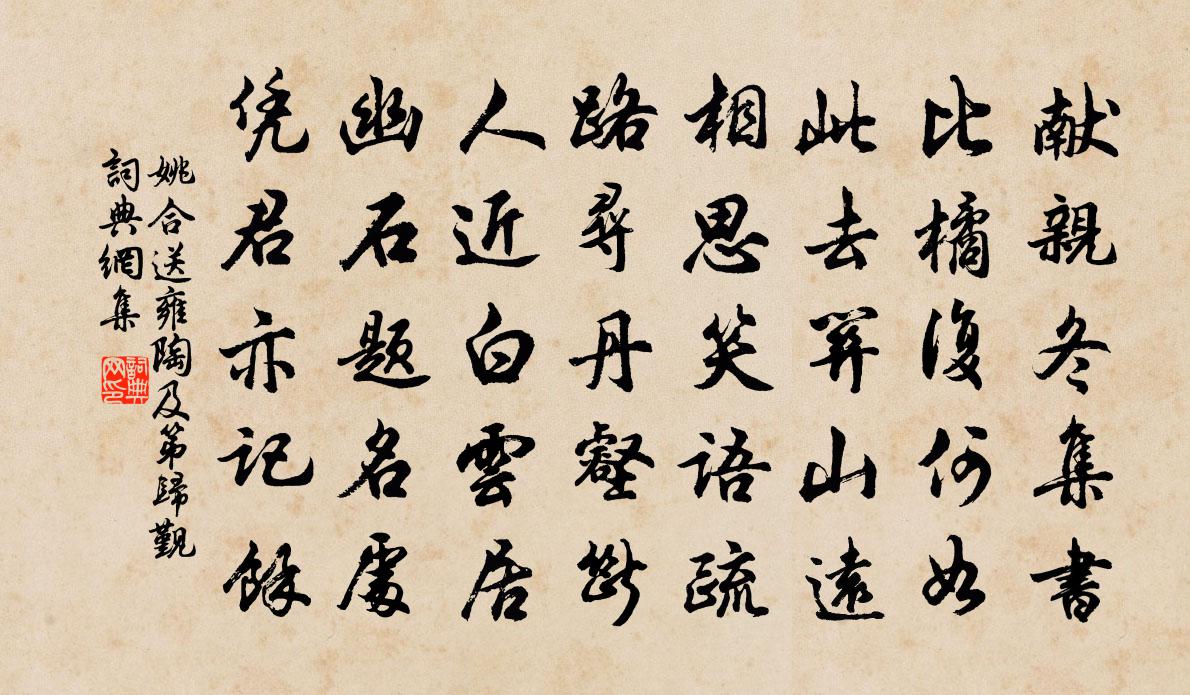 献親冬集書
比橘復何如
此去關山遠
相思笑語疏
路尋丹壑斷
人近白雲居
幽石題名處
凭君亦記餘
姚合送雍陶及第歸覲
詞典網集
詞典
网印